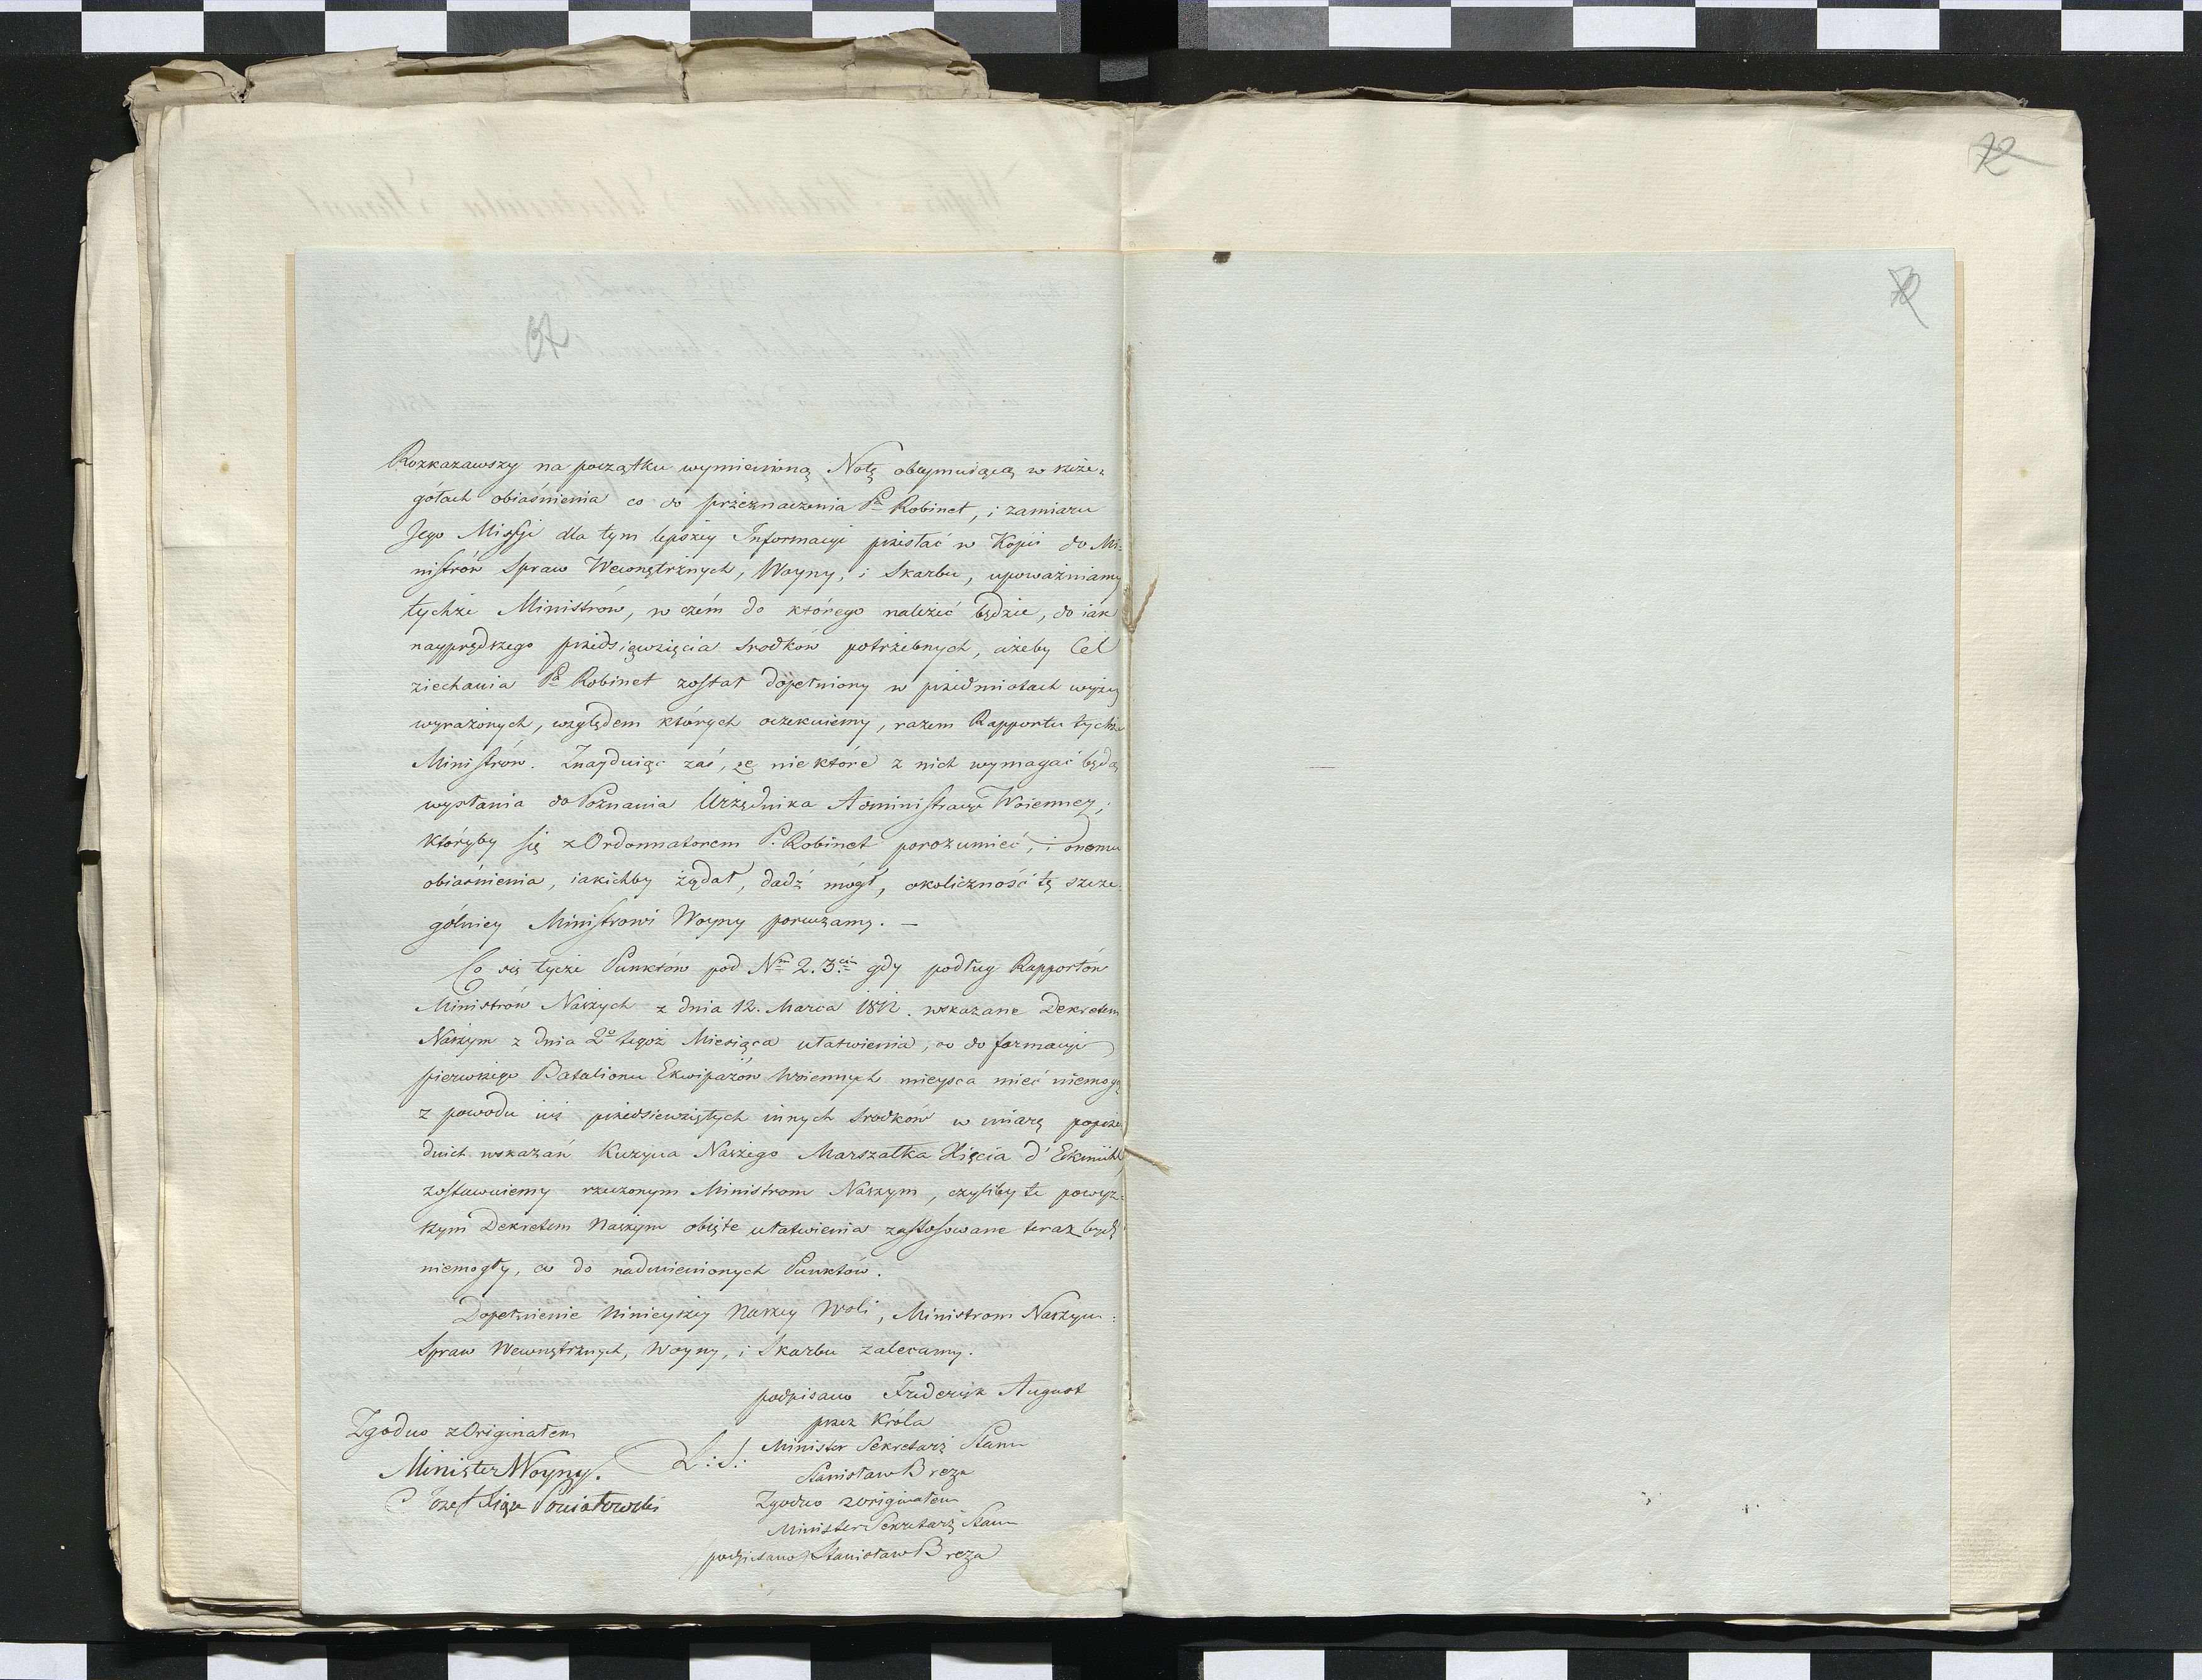 72
72
Rozkazawszy na początku wymienioną Notę obeymuiącą w szcze=
gółach obiaśnienia co do przeznaczenia Pa Robinet, i zamiaru
Jego Missji dla tym lepszey Informacyi przesłać w Kopii do Mi=
nistrów Spraw Wewnętrznych, Woyny, i Skarbu, upoważniamy
tychże Ministrów, w czém do którego należeć będzie, do iak
nayprędszego przedsięwzięcia srodków potrzebnych, ażeby Cel
ziechania Pa Robinet został dopełniony w przedmiotach wyżey
wyrażonych, względem których oczekuiemy, razem Rapportu tychże
Ministrów. Znayduiąc zaś, że nie które z nich wymagać będą
wysłania do Poznania Urzędnika Administracyi Woienney;
któryby się z Ordonnatorem P. Robinet porozumieć, i onemu
obiaśnienia, iakichby żądał, dadź mógł, okoliczność tę szcze=
gólniey Ministrowi Woyny poruczamy. —
Co się tycze Punktów pod Nm 2. 3cim gdy podług Rapportów
Ministrów Naszych z dnia 12. Marca 1812. wskazane Dekretem
Naszym z dnia 2o tegoż Miesiąca ułatwienia, co do formacyi
pierwszego Batalionu Ekwipażów Woiennych mieysca mieć niemogą
z powodu iuż przedsiewziętych innych srodków w miarę poprze=
dnich wskazań Kuzyna Naszego Marszałka Xięcia d'Eckmühl
zostawuiemy rzeczonym Ministrom Naszym, czyliby te powyż=
szym Dekretem Naszym obięte ułatwienia zastosowane teraz bydź
niemogły, co do nadmienionych Punktów.
Dopełnienie ninieyszey Naszey Woli, Ministrom Naszym:
Spraw Wewnętrznych, Woyny, i Skarbu zalecamy.
podpisano Friderijk August
przez Króla
Minister Sekretarz Stanu
Stanisław Breza
L: S:
Zgodno z Originałem
Minister Sekretarz Stanu
podpisano) Stanisław Breza
Zgodno z Originałem
Minister Woyny.
Józef Xiąże Poniatowski